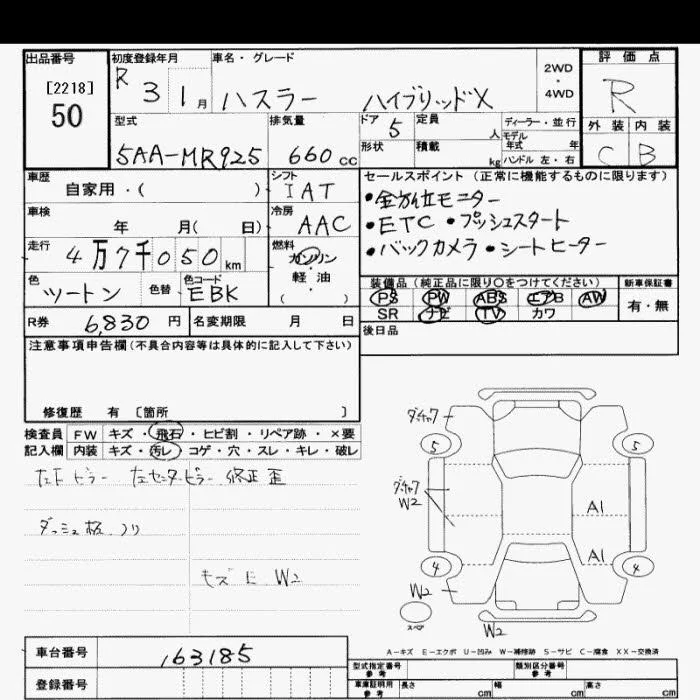 出品番号
[2218]
50
初度登録年月
R 3 1月
車名・グレード
ハスラー ハイブリッドX
2WD
・
4WD
評価点
R
型式
5AA-MR925
排気量
660 cc
ドア 5
定員 人
形状
積載 kg
ディーラー・並行
モデル年式 年
ハンドル 左・右
外装 内装
C B
車歴
自家用・( )
シフト
IAT
車検
年 月( 日)
冷房
AAC
走行
4万7千050 km
燃料
ガソリン
・
軽油
( )
色
ツートン
色替
色コード
EBK
セールスポイント(正常に機能するものに限ります)
●全方位モニター
●ETC ●プッシュスタート
●バックカメラ ●シートヒーター
装備品(純正品に限り○をつけてください)
PS PW ABS エアB AW
SR ナビ TV カワ
新車保証書
有・無
R券 6,830 円
名変期限 月 日
後日品
注意事項申告欄(不具合内容等は具体的に記入して下さい)
修復歴 有 〔箇所 〕
検査員記入欄
FW キズ・飛石・ヒビ割・リペア跡・×要
内装 キズ・汚レ・コゲ・穴・スレ・キレ・破レ
左F ピラー 左センターピラー 修正歪
キズ E W2
5
5
W2
A1
A1
4
4
W2
スペア
W2
A-キズ E-エクボ U-凹み W-補修跡 S-サビ C-腐食 XX-交換済
車台番号
163185
登録番号
型式指定番号
参考
類別区分番号
参考
車庫証明用
参考
長さ cm
幅 cm
高さ cm